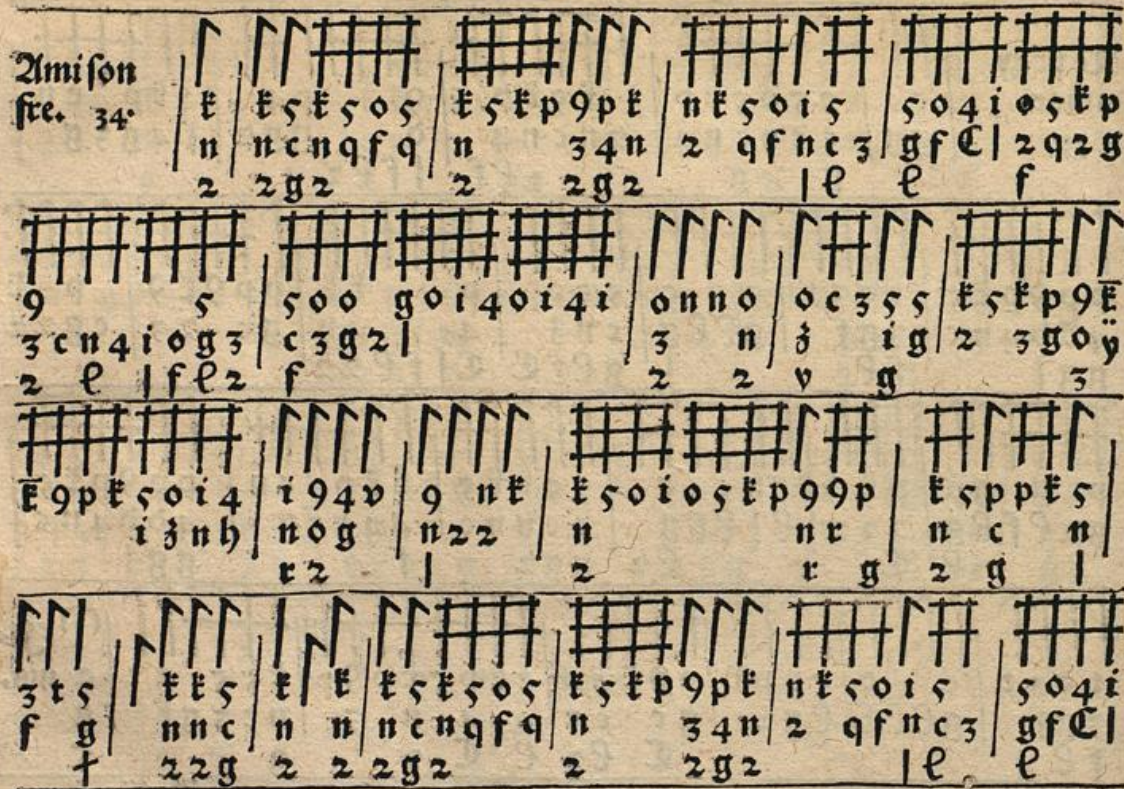 Ami son
fre. 34.
k k 5 k 5 o 5 k 5 k p 9 p k n k 5 o i 5 5 o 4 i o 5 k p
n n c n q f q n 3 4 n 2 q f n c 3 g f C l 2 q 2 g
2 2 g 2 2 2 g 2 l e e f
9 5 5 o o g o i 4 o i 4 i o n n o o c 3 5 5 k 5 k p 9 k̄
3 c n 4 i o g 3 c 3 g 2 l 3 n ȝ i g 2 3 g o ÿ
2 e l f e 2 f 2 2 v g 3
k̄ 9 p k 5 o i 4 i 9 4 v 9 n k k 5 o i o 5 k p 9 9 p k 5 p p k 5
i ȝ n h n o g n 2 2 n n r n c n
r 2 l 2 r g 2 g l
3 t 5 k k 5 k k k 5 k 5 o 5 k 5 k p 9 p k n k 5 o i 5 5 o 4 i
f g n n c n n n c n q f q n 3 4 n 2 q f n c 3 g f C l
† 2 2 g 2 2 2 g 2 2 2 g 2 l e e